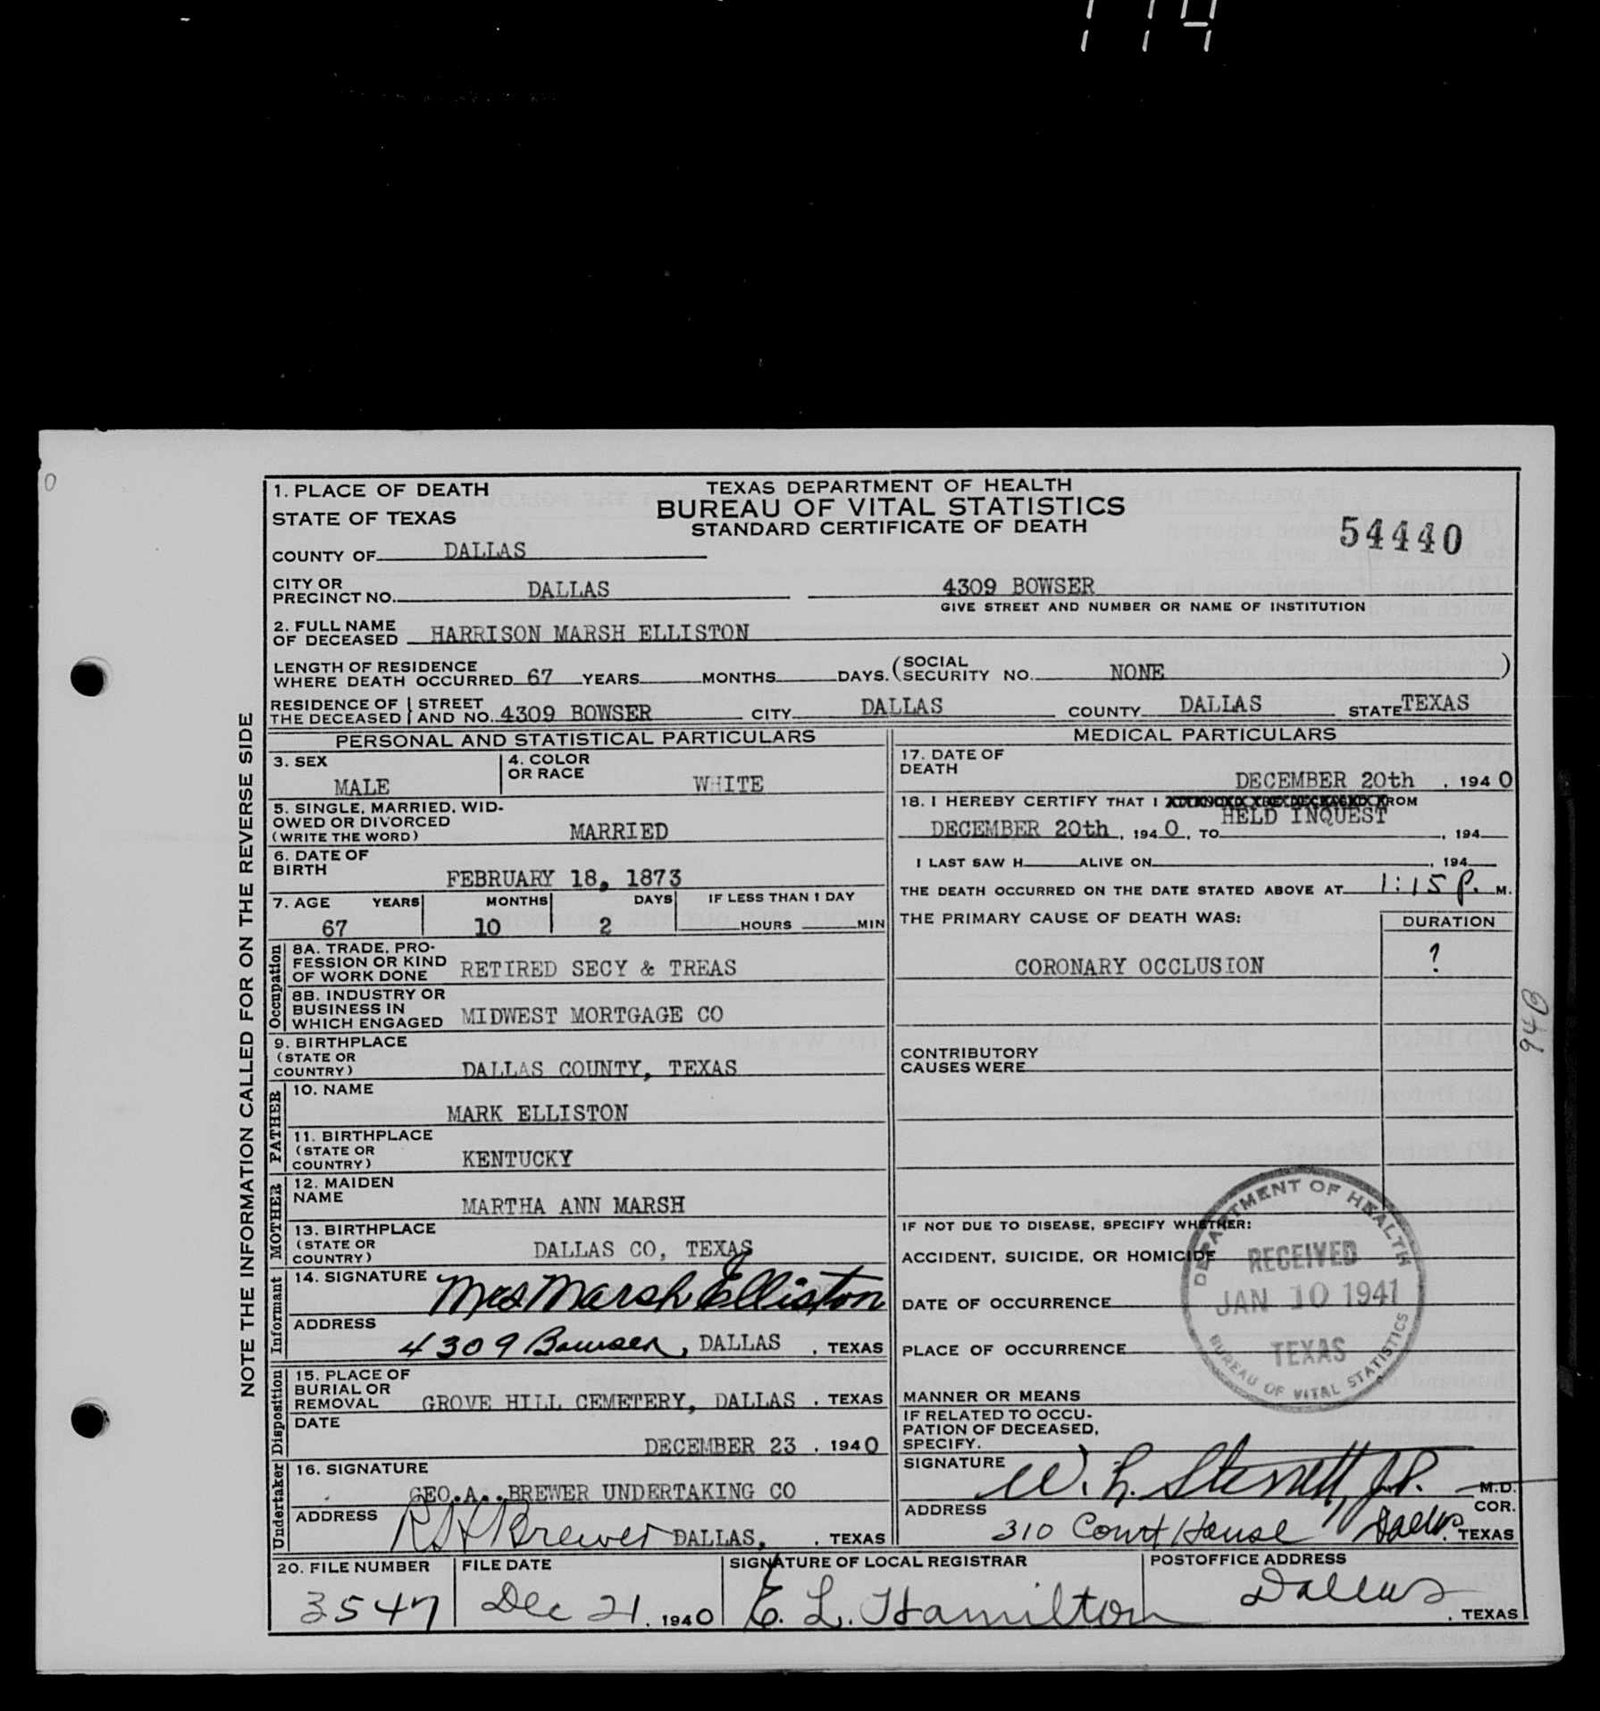 114
1. PLACE OF DEATH
STATE OF TEXAS
TEXAS DEPARTMENT OF HEALTH
BUREAU OF VITAL STATISTICS
STANDARD CERTIFICATE OF DEATH
54440
COUNTY OF DALLAS
CITY OR PRECINCT NO. DALLAS 4309 BOWSER
GIVE STREET AND NUMBER OR NAME OF INSTITUTION
2. FULL NAME OF DECEASED HARRISON MARSH ELLISTON
LENGTH OF RESIDENCE WHERE DEATH OCCURRED 67 YEARS MONTHS DAYS. (SOCIAL SECURITY NO. NONE )
RESIDENCE OF THE DECEASED STREET AND NO. 4309 BOWSER CITY DALLAS COUNTY DALLAS STATE TEXAS
PERSONAL AND STATISTICAL PARTICULARS
3. SEX MALE
4. COLOR OR RACE WHITE
5. SINGLE, MARRIED, WIDOWED OR DIVORCED (WRITE THE WORD) MARRIED
6. DATE OF BIRTH FEBRUARY 18, 1873
7. AGE YEARS MONTHS DAYS IF LESS THAN 1 DAY
67 10 2 HOURS MIN
Occupation
8A. TRADE, PROFESSION OR KIND OF WORK DONE RETIRED SECY & TREAS
8B. INDUSTRY OR BUSINESS IN WHICH ENGAGED MIDWEST MORTGAGE CO
9. BIRTHPLACE (STATE OR COUNTRY) DALLAS COUNTY, TEXAS
FATHER
10. NAME MARK ELLISTON
11. BIRTHPLACE (STATE OR COUNTRY) KENTUCKY
MOTHER
12. MAIDEN NAME MARTHA ANN MARSH
13. BIRTHPLACE (STATE OR COUNTRY) DALLAS CO, TEXAS
Informant
14. SIGNATURE Mrs Marsh Elliston
ADDRESS 4309 Bowser, DALLAS , TEXAS
Disposition
15. PLACE OF BURIAL OR REMOVAL GROVE HILL CEMETERY, DALLAS , TEXAS
DATE DECEMBER 23 , 1940
Undertaker
16. SIGNATURE GEO. A. BREWER UNDERTAKING CO
ADDRESS Brewer DALLAS, , TEXAS
MEDICAL PARTICULARS
17. DATE OF DEATH DECEMBER 20th , 1940
18. I HEREBY CERTIFY THAT I FROM
HELD INQUEST
DECEMBER 20th , 1940, TO , 194
I LAST SAW H ALIVE ON , 194
THE DEATH OCCURRED ON THE DATE STATED ABOVE AT 1:15 P. M.
THE PRIMARY CAUSE OF DEATH WAS: DURATION
CORONARY OCCLUSION ?
CONTRIBUTORY CAUSES WERE
IF NOT DUE TO DISEASE, SPECIFY WHETHER:
ACCIDENT, SUICIDE, OR HOMICIDE
DATE OF OCCURRENCE
PLACE OF OCCURRENCE
MANNER OR MEANS
IF RELATED TO OCCUPATION OF DECEASED, SPECIFY.
SIGNATURE W. L. Sterrett, J.P. M.D.
COR.
ADDRESS 310 Court House Dallas, TEXAS
DEPARTMENT OF HEALTH
RECEIVED
JAN 10 1941
TEXAS
BUREAU OF VITAL STATISTICS
20. FILE NUMBER 3547
FILE DATE Dec 21, 1940
SIGNATURE OF LOCAL REGISTRAR E. L. Hamilton
POSTOFFICE ADDRESS Dallas , TEXAS
NOTE THE INFORMATION CALLED FOR ON THE REVERSE SIDE
94B